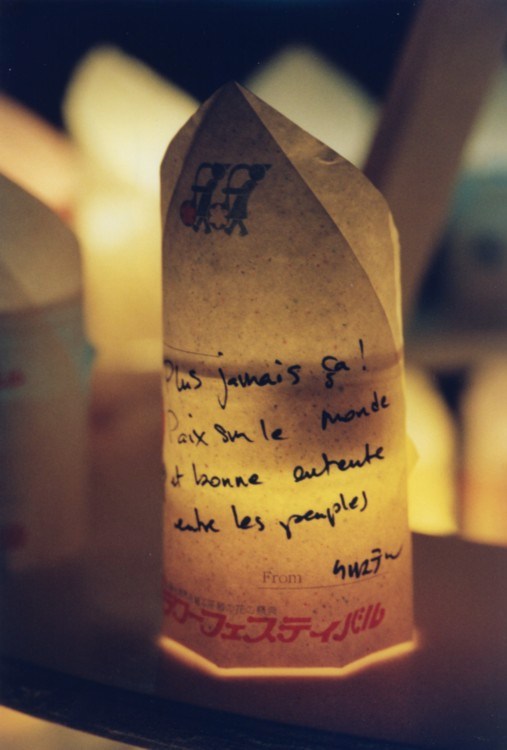 Plus jamais ça!
Paix sur le monde
et bonne entente
entre les peuples
From
ワーフェスティバル